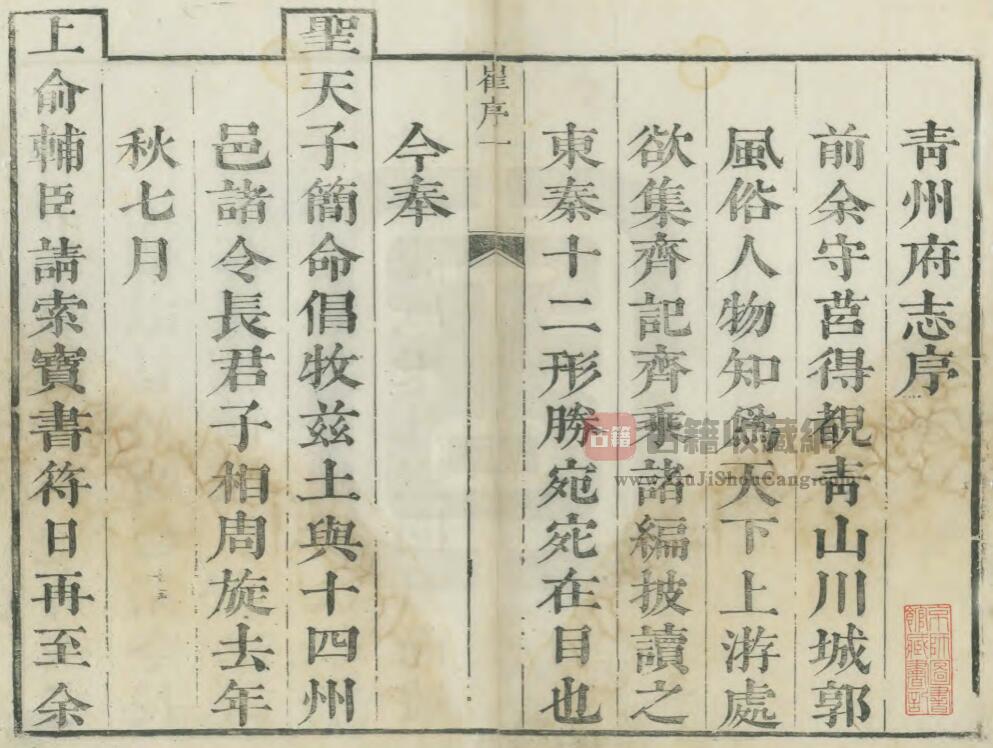 青州府志序
前余守莒得覩青山川城郭
風俗人物知爲天下上游處
欲集齊記齊乘諸編披讀之
東秦十二形勝宛宛在目也
今奉
崔序一
聖天子簡命倡牧兹土與十四州
邑諸令長君子相周旋去年
秋七月
上俞輔臣請索寶書符日再至余
京師圖書館藏書記
古籍
古籍收藏網
www.GuJiShouCang.com